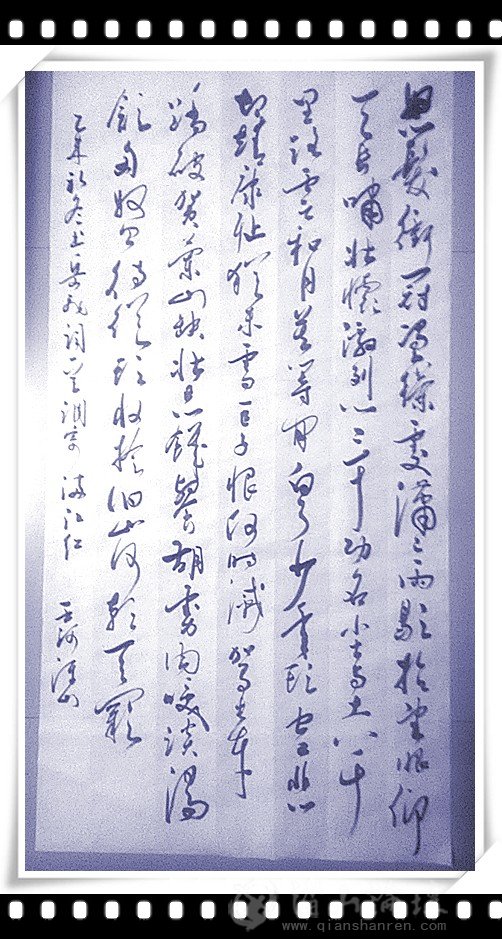 怒髮衝冠凭欄處瀟瀟雨歇抬望眼仰
天長嘯壯懷激烈三十功名尘与土八千
里路雲和月莫等閒白了少年頭空悲
切靖康耻猶未雪臣子恨何时滅駕长车
踏破賀蘭山缺壯志飢餐胡虜肉笑談渴
飲匈奴血待從頭收拾旧山河朝天闕
乙未初冬书岳飛詞一首調寄 满江红
www.qianshanren.com